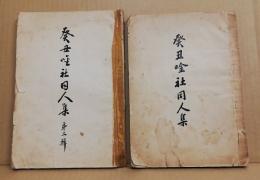 癸丑唫社同人集 第二輯
癸丑唫社同人集